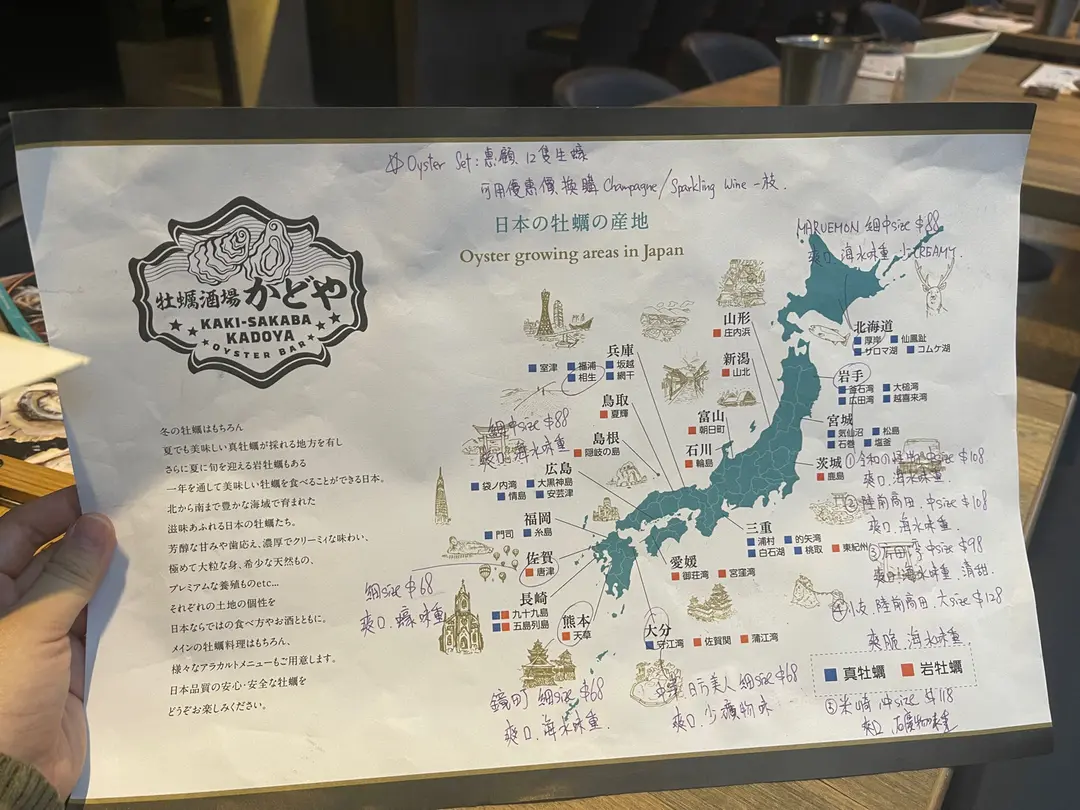 Oyster Set: 惠顧 12隻生蠔
可用優惠價換購 Champagne/Sparkling Wine 一枝.
日本の牡蠣の産地
Oyster growing areas in Japan
牡蠣酒場 かどや
KAKI-SAKABA
KADOYA
OYSTER BAR
冬の牡蠣はもちろん
夏でも美味しい真牡蠣が採れる地方を有し
さらに夏に旬を迎える岩牡蠣もある
一年を通して美味しい牡蠣を食べることができる日本。
北から南まで豊かな海域で育まれた
滋味あふれる日本の牡蠣たち。
芳醇な甘みや歯応え、濃厚でクリーミィな味わい、
極めて大粒な身、希少な天然もの、
プレミアムな養殖ものetc...
それぞれの土地の個性を
日本ならではの食べ方やお酒とともに。
メインの牡蠣料理はもちろん、
様々なアラカルトメニューもご用意します。
日本品質の安心・安全な牡蠣を
どうぞお楽しみください。
MARUEMON 細中size $88
爽口 海水味重 少CREAMY
北海道
厚岸 仙鳳趾
サロマ湖 コムケ湖
山形
庄内浜
新潟
山北
富山
朝日町
石川
輪島
兵庫
室津 福浦 坂越
相生 網干
細中size $88
爽口 海水味重
鳥取
夏輝
島根
隠岐の島
広島
袋ノ内湾 大黒神島
情島 安芸津
福岡
門司 糸島
佐賀
唐津
細size $68
爽口. 蠔味重
長崎
九十九島
五島列島
熊本
天草
鏡町 細size $68
爽口. 海水味重.
大分
守江湾 佐賀関 蒲江湾
日向美人 細size $68
爽口 少礦物味
愛媛
御荘湾 宮窪湾
三重
浦村 的矢湾 東紀州
白石湖 桃取
岩手
釜石湾 大槌湾
広田湾 越喜来湾
宮城
気仙沼 松島
石巻 塩釜
茨城
鹿島
① 令和の怪物 中size $108
爽口. 海水味重.
② 陸前高田. 中size $108
爽口. 海水味重.
③ 中size $98
爽口 海水味重. 清甜.
④ 小友 陸前高田. 大size $128
爽脆. 海水味重.
真牡蠣 岩牡蠣
⑤ 米崎 中size $118
爽口